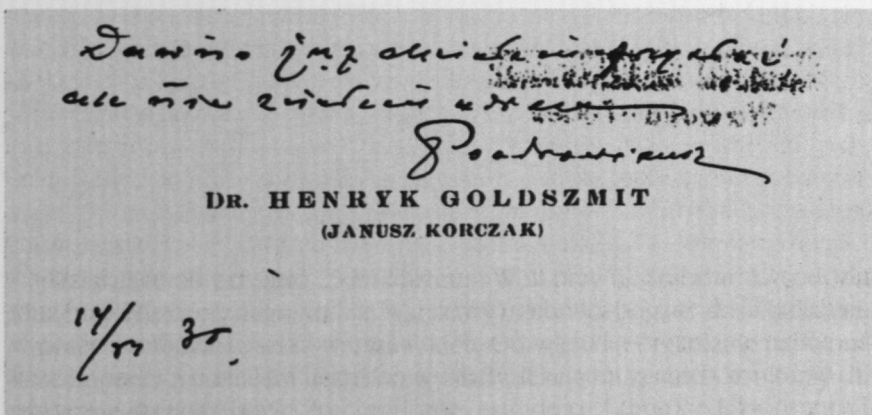 Dawno już chciałem przysłać
ale nie znałem adresu
Pozdrowienia
DR. HENRYK GOLDSZMIT
(JANUSZ KORCZAK)
14/VI 30.